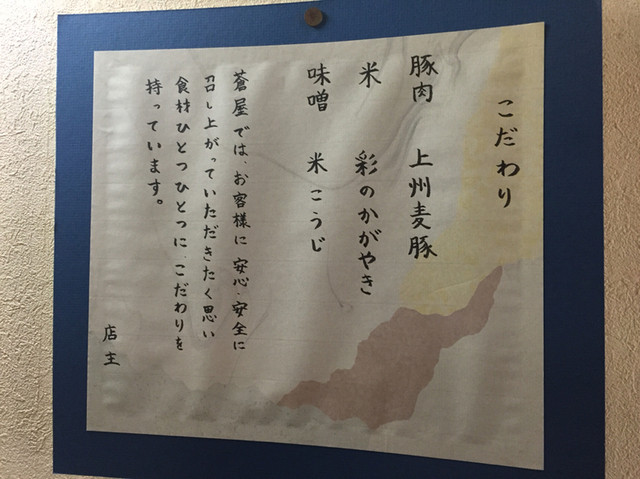 こだわり
豚肉 上州麦豚
米 彩のかがやき
味噌 米こうじ
蒼屋では、お客様に安心・安全に
召し上がっていただきたく思い
食材ひとつひとつに、こだわりを
持っています。
店主